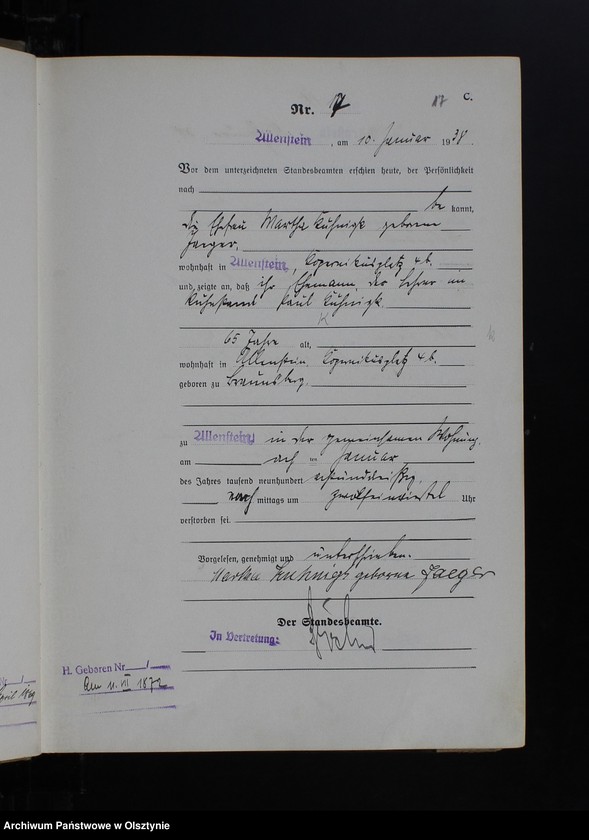 17 C.
Nr. 7
Allenstein, am 10. Januar 1938.
Vor dem unterzeichneten Standesbeamten erschien heute, der Persönlichkeit
nach
be kannt,
die Ehefrau Martha Kuhnigk geborene
Jaeger,
wohnhaft in Allenstein, Kopernikusplatz 4b.
und zeigte an, daß ihr Ehemann, der Lehrer im
Ruhestand Paul Kuhnigk
K
65 Jahre alt,
wohnhaft in Allenstein, Kopernikusplatz 4b.
geboren zu Braunsberg,
zu Allenstein in der gemeinsamen Wohnung,
am acht en Januar
des Jahres tausend neunhundert achtunddreißig
nach mittags um Uhr
verstorben sei.
Vorgelesen, genehmigt und unterschrieben.
Martha Kuhnigk geborene Jaeger
Der Standesbeamte.
In Vertretung:
H. Geboren Nr /
Am 11. VII 1872
Archiwum Państwowe w Olsztynie